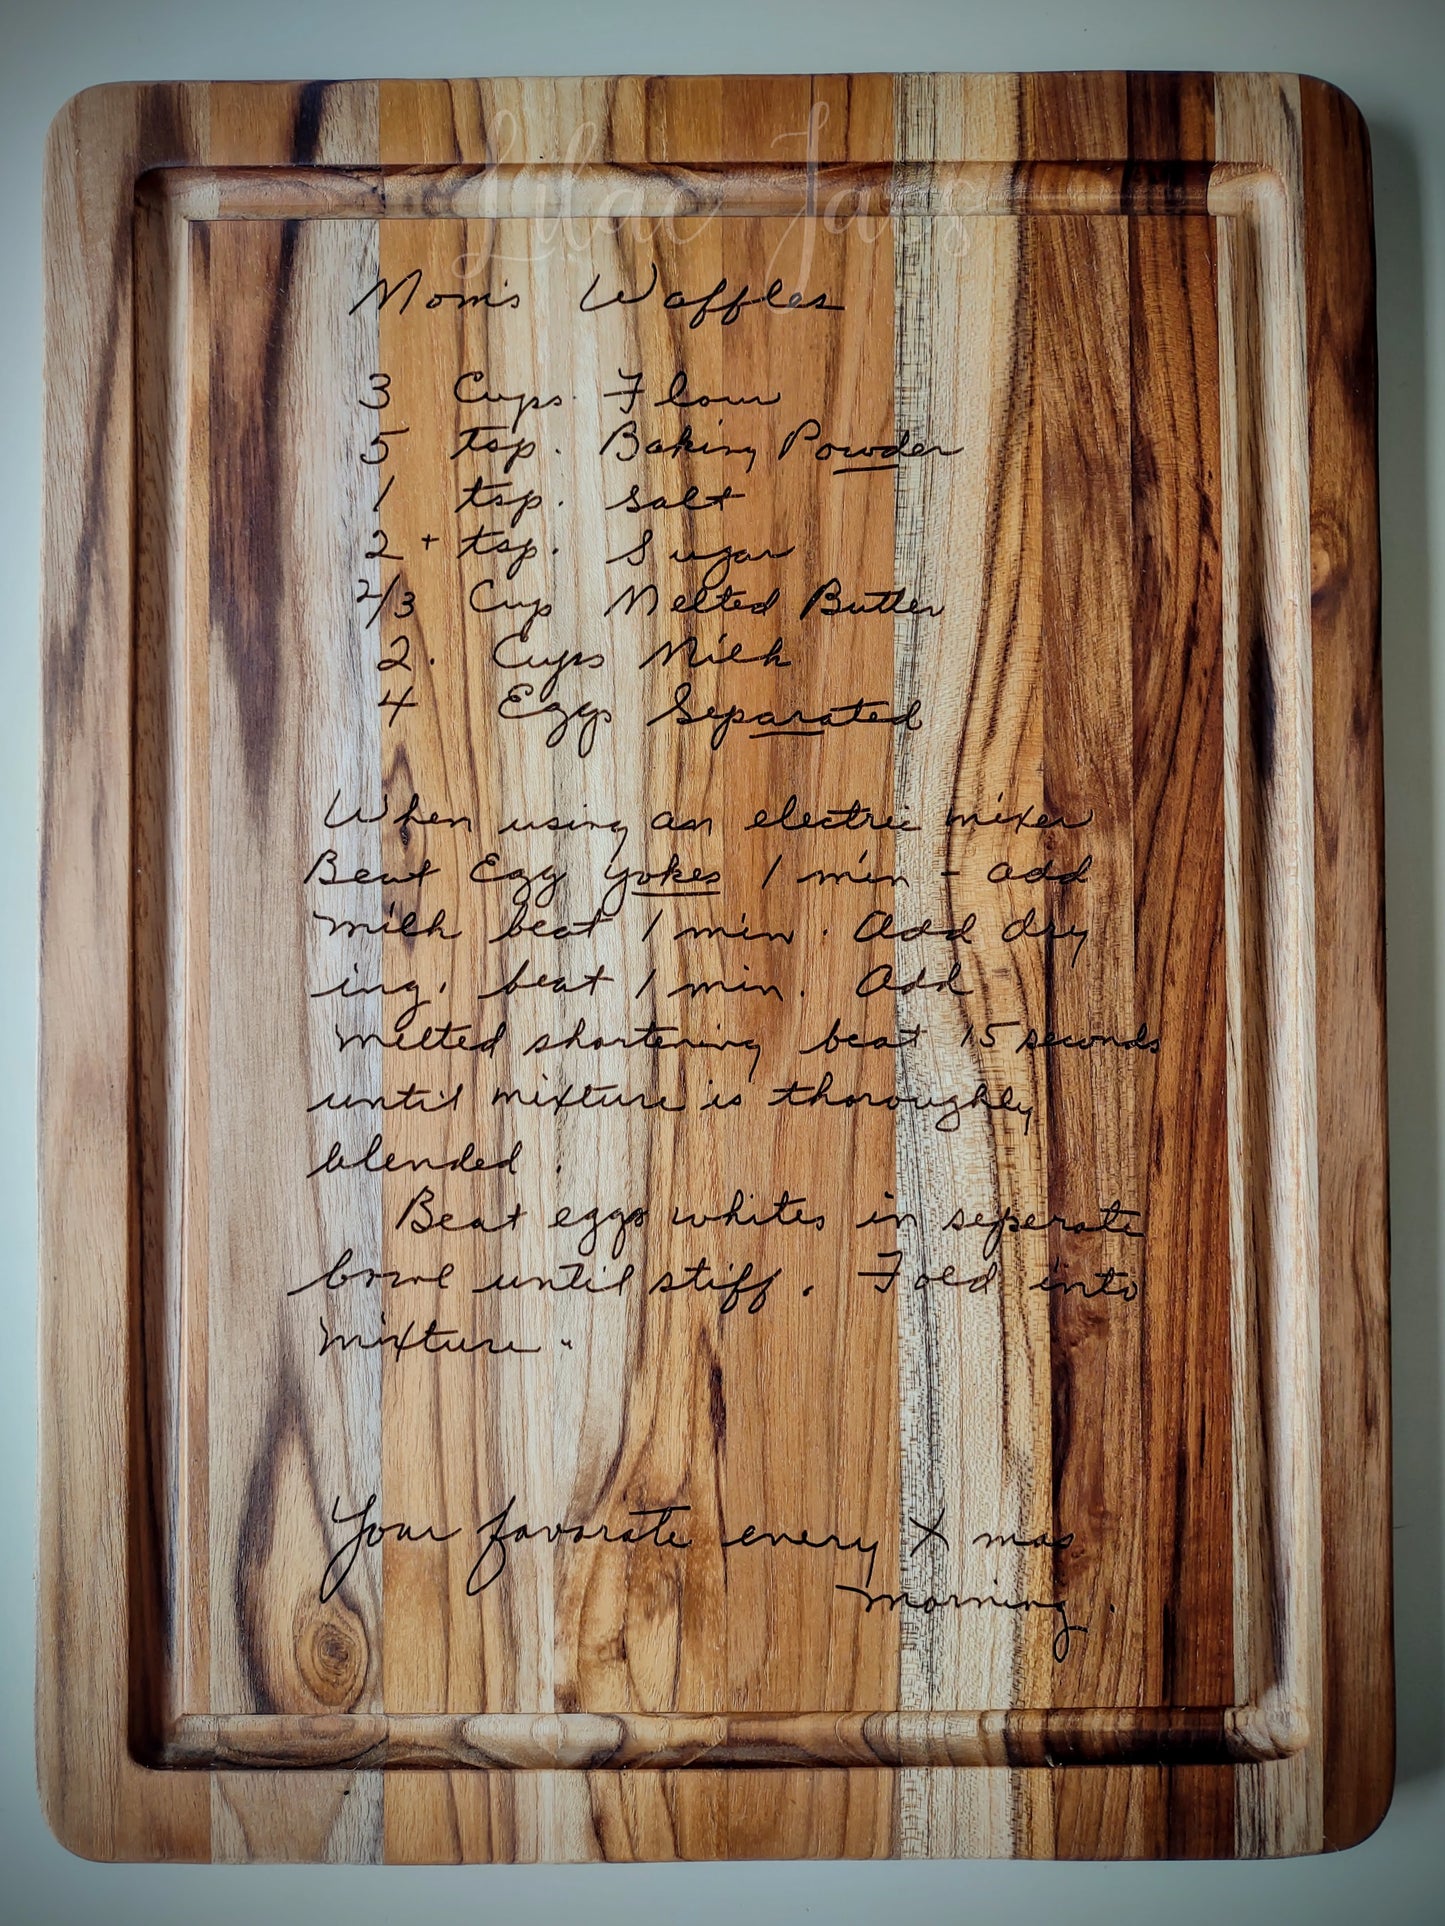 Lilac Jars
Mom's Waffles
3 Cups. Flour
5 tsp. Baking Powder
1 tsp. Salt
2+ tsp. Sugar
2/3 Cup Melted Butter
2. Cups Milk
4 Eggs Separated
When using an electric mixer
Beat Egg Yokes 1 min - add
milk beat 1 min. Add dry
ing. beat 1 min. Add
melted shortening beat 15 seconds
until mixture is thoroughly
blended.
Beat eggs whites in seperate
bowl until stiff. Fold into
mixture.
Your favorate every Xmas
morning.